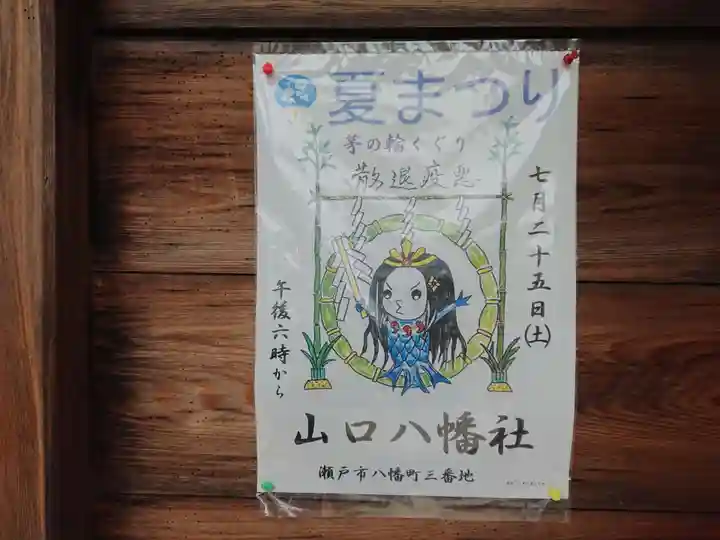 夏まつり
茅の輪くぐり
散退疫悪
七月二十五日(土)
午後六時から
山口八幡社
瀬戸市八幡町三番地